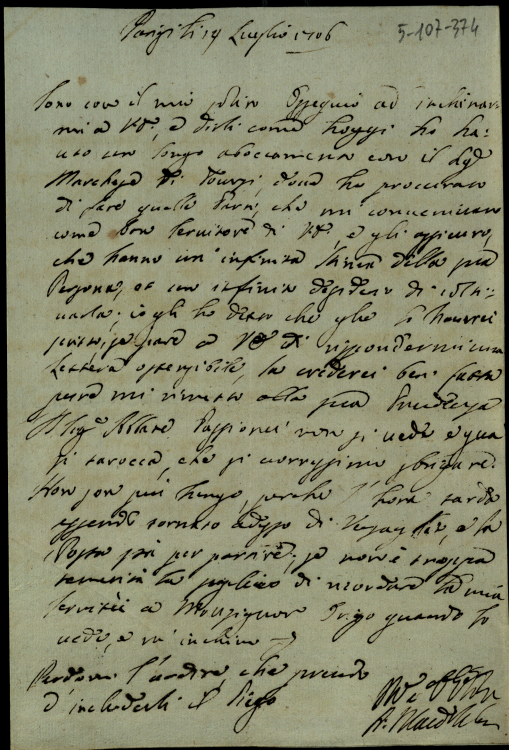 Parigi li 19 Luglio 1706
5-107-374
Sono con il mio solito ossequio ad inchinar
mi a V.S., e dirli come hoggi ho ha
uto un longo aboccamento con il Sig.
Marchese di Tourzi, dove ho procurato
di fare quelle parti, che mi convenivano
come bon servitore di V.S., e gli assicuro,
che hanno un' infinita stima della sua
Persona, et un infinito desiderio di
io gli ho detto che glie l' haverei
a V.S. di rispondermi una
lettera ostensibile, la crederei ben fatta
però mi rimetto alla sua Prudenza
Il Sig. Abbate Passionei non si vede e qua
si tarocca, che si vorressimo sbrigare.
Non son più lungo, perche l' hora tarda
essendo tornato adesso di Versaglie, e la
Posta stà per partire; se non è troppa
temerità la suplico di ricordare la mia
servitù a Monsignor quando lo
vede, e m' inchino
Perdoni l' ardire, che prendo
d' includerli il Piego